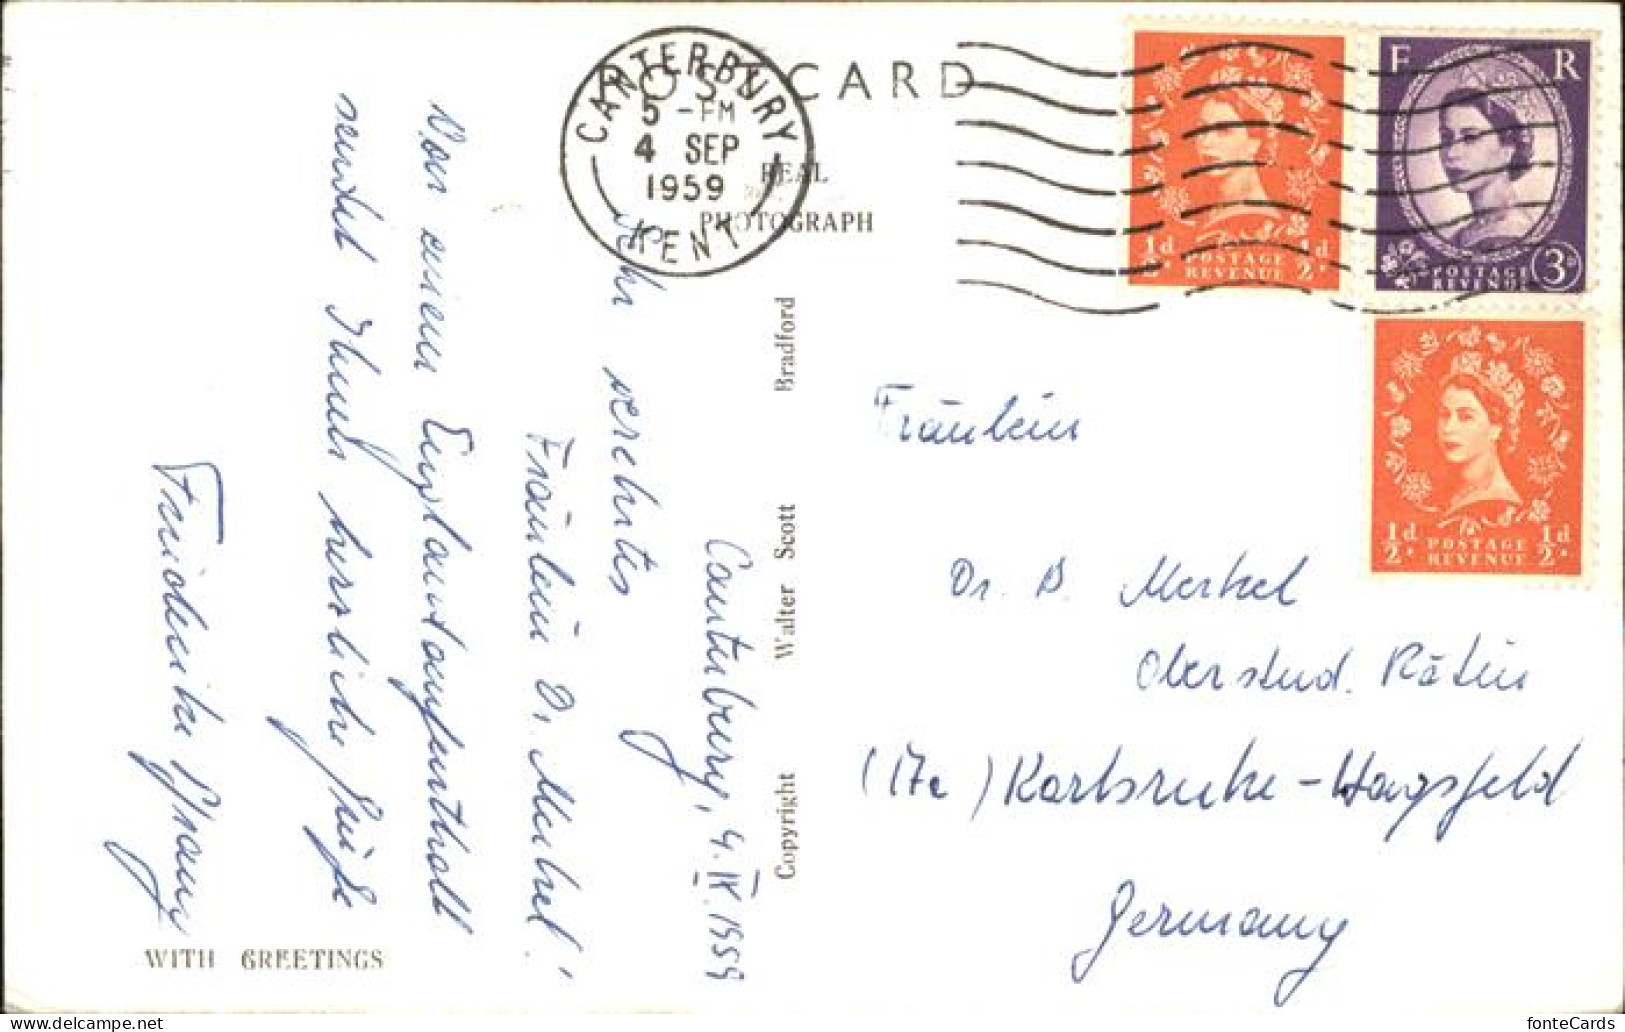 POST CARD
REAL
PHOTOGRAPH
CANTERBURY
5 - PM
4 SEP
1959
KENT
1/2d. POSTAGE REVENUE 1/2d.
E R
POSTAGE REVENUE 3D
1/2d. POSTAGE REVENUE 1/2d.
Canterbury, 4.IX.1959
Sehr verehrtes
Fräulein D. Merkel!
Von einem Englandaufenthalt
sendet Ihnen herzliche Grüße
Friederike
WITH GREETINGS
Copyright Walter Scott Bradford
Fräulein
Dr. B. Merkel
Oberstud. Rätin
(17a) Karlsruhe-Hagsfeld
Germany
fonteCards
delcampe.net